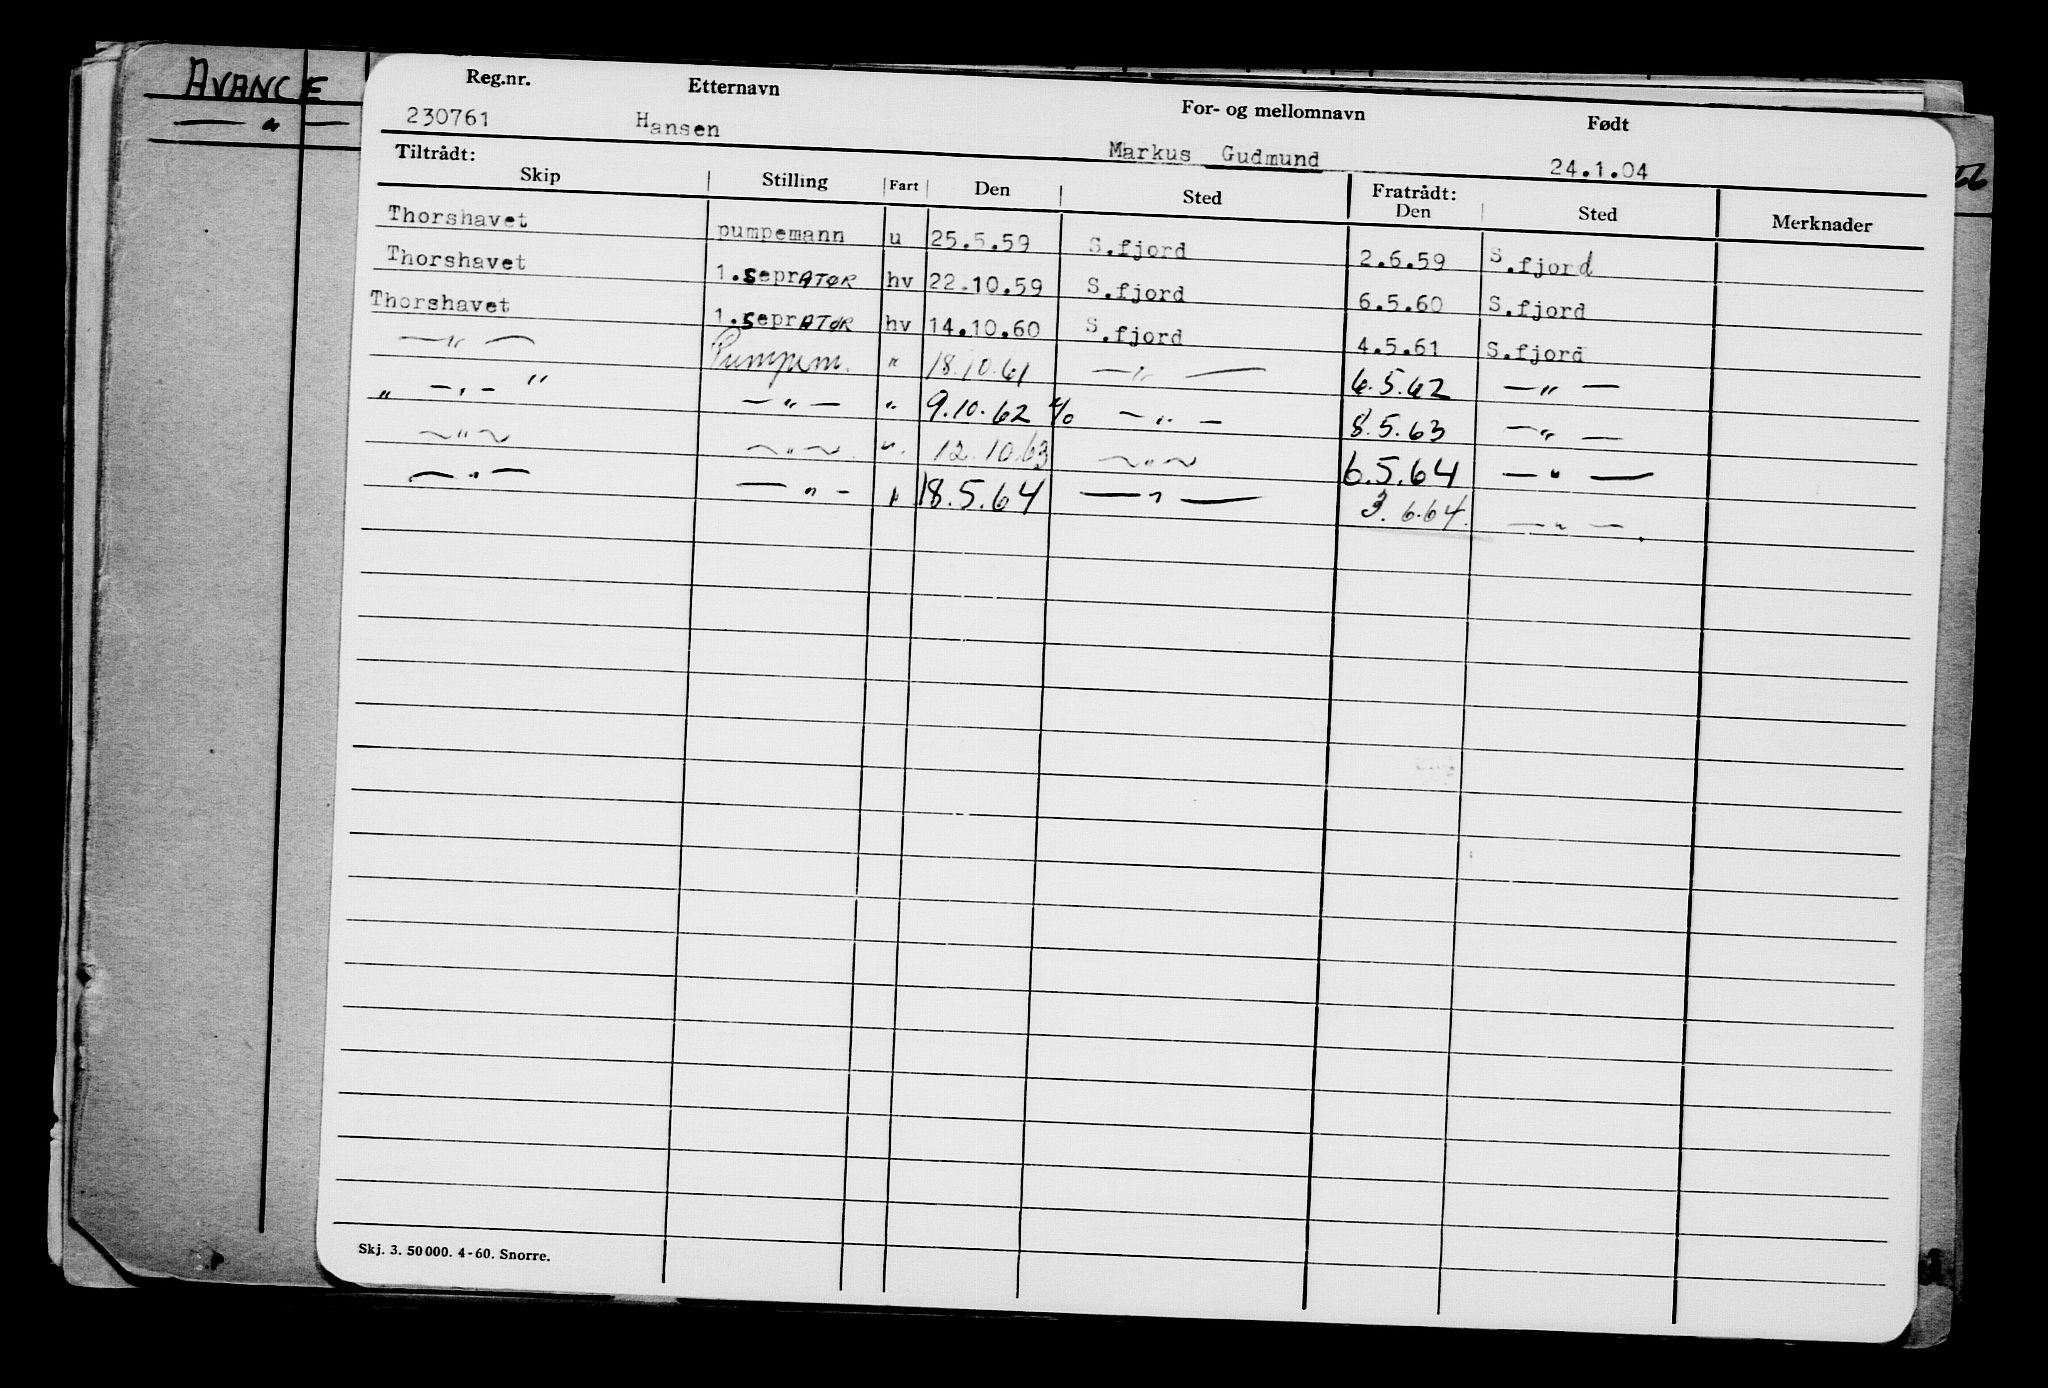 AVANCE
— " —
Reg.nr. Etternavn For- og mellomnavn Født
230761 Hansen Markus Gudmund 24.1.04
Tiltrådt: Fratrådt:
Skip Stilling Fart Den Sted Den Sted Merknader
Thorshavet pumpemann u 25.5.59 S.fjord 2.6.59 S.fjord
Thorshavet 1.seprATØR hv 22.10.59 S.fjord 6.5.60 S.fjord
Thorshavet 1.seprATØR hv 14.10.60 S.fjord 4.5.61 S.fjord
— " — Pumpem. " 18.10.61 — " — 6.5.62 — " —
" — " — " — " — " 9.10.62 % — " — 8.5.63 — " —
— " — — " — " 12.10.63 — " — 6.5.64 — " —
— " — — " — " 18.5.64 — " — 3.6.64. — " —
Skj. 3. 50000. 4-60. Snorre.